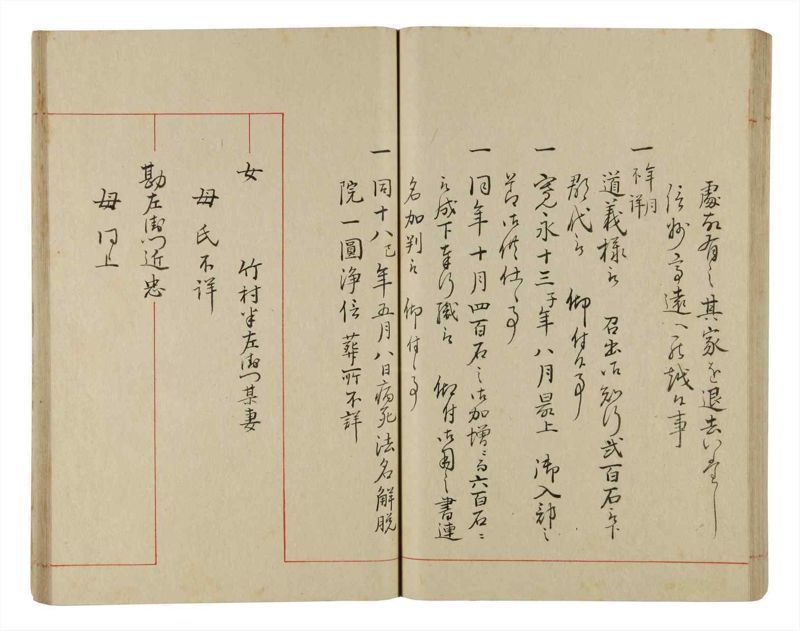 處故有之其家を退去いたし
信州高遠へ罷越候事
一 年月不詳
道義様に 召出御知行弐百石被下
郡代に 仰付候事
一 寛永十三子年八月最上 御入部之
節御供仕候事
一 同年十月四百石之御加増ニ而六百石ニ
被成下奉行職に 仰付御用之書連
名加判に 仰付候事
一 同十八巳年五月八日病死法名解脱
院一圓浄信葬所不詳
女 竹村半左衛門某妻
母氏不詳
勘左衛門近忠
母同上